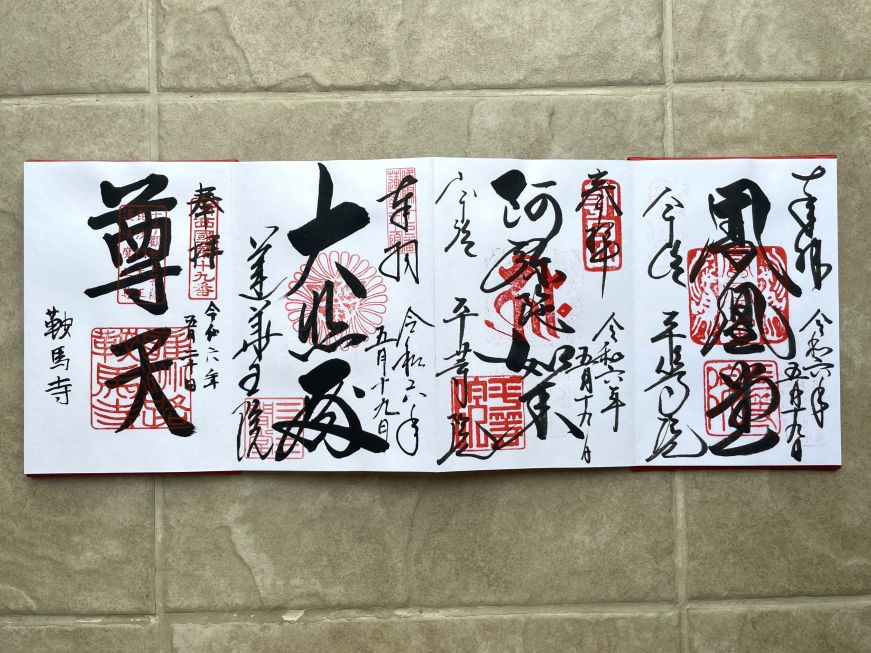 奉拝
令和六年
五月十九日
鳳凰堂
宇治 平等院
奉拝
令和六年
五月十九日
阿弥陀如来
宇治 平等院
奉拝
令和六年
五月十九日
大悲殿
蓮華王院
奉拝
西國十九番
令和六年
五月二十日
尊天
鞍馬寺